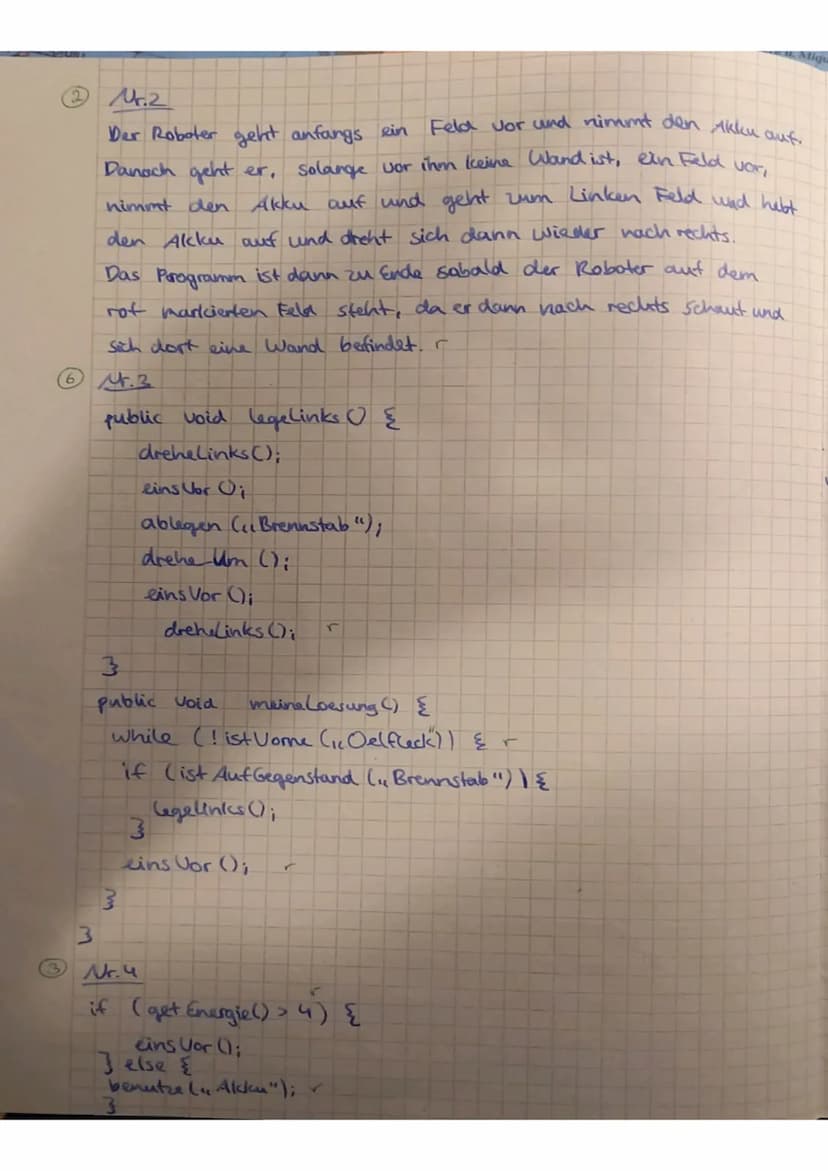 ② Nr.2
Der Roboter geht anfangs ein Feld vor und nimmt den Akku auf.
Danach geht er, solange vor ihm keine Wand ist, ein Feld vor,
nimmt den Akku auf und geht zum Linken Feld und hebt
den Akku auf und dreht sich dann wieder nach rechts.
Das Programm ist dann zu Ende sobald der Roboter auf dem
rot markierten Feld steht, da er dann nach rechts schaut und
sich dort eine Wand befindet.
⑥ Nr.3
public void legeLinks() {
dreheLinks();
einsVor();
ablegen („Brennstab“);
drehe Um ();
einsVor();
dreheLinks();
}
public void meineLoesung() {
while (!istVorne („Oelfleck")) {
if (istAufGegenstand („Brennstab")) {
legeLinks();
}
einsVor();
}
}
③ Nr.4
if (getEnergie() > 4) {
einsVor();
} else {
benutze(„Akku");
}